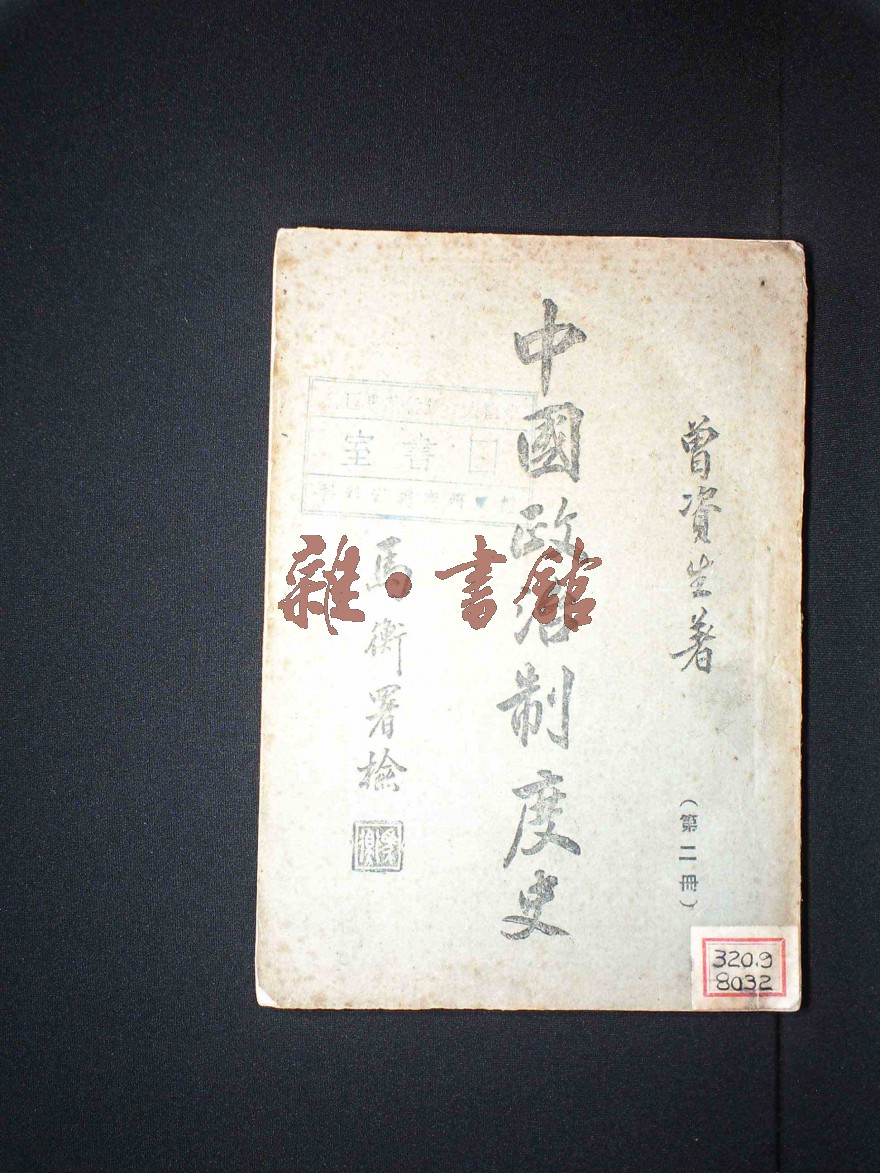 曾資生著
(第二冊)
中國政治制度史
馬衡署檢
雜·書館
書室
320.9
8032